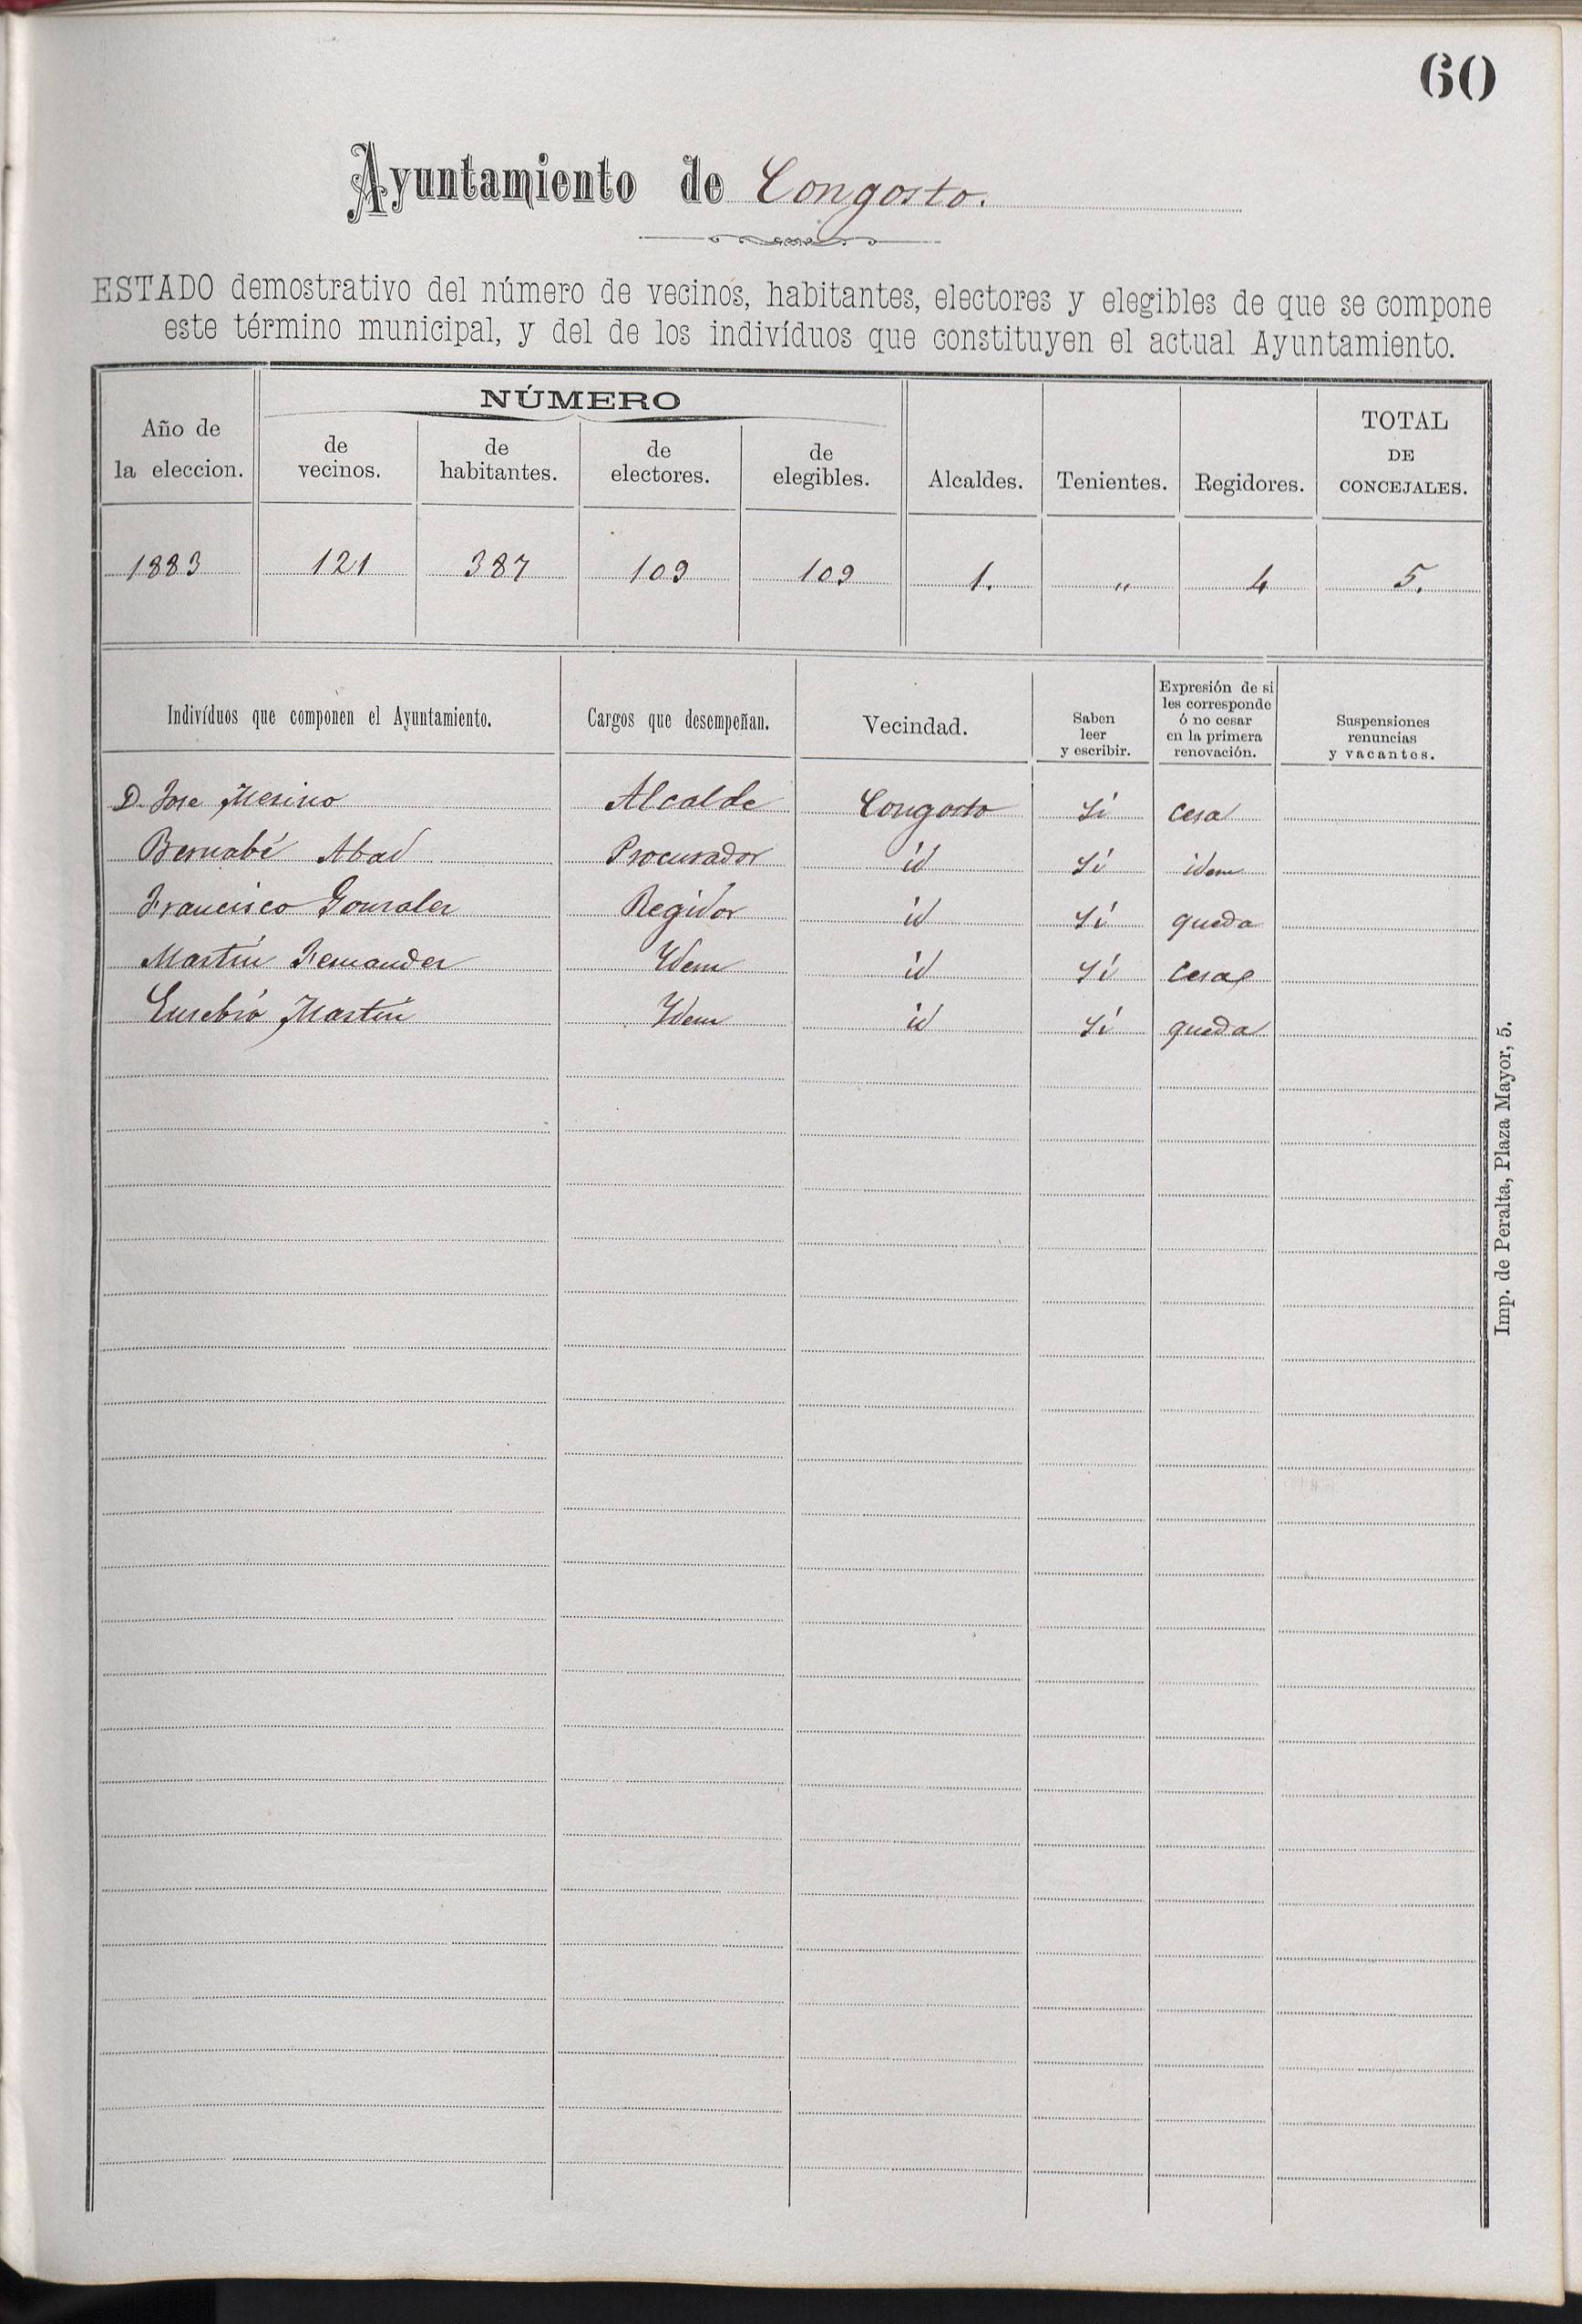 60
Ayuntamiento de Congosto.
ESTADO demostrativo del número de vecinos, habitantes, electores y elegibles de que se compone
este término municipal, y del de los indivíduos que constituyen el actual Ayuntamiento.
Año de la eleccion. NÚMERO de vecinos. de habitantes. de electores. de elegibles. Alcaldes. Tenientes. Regidores. TOTAL DE CONCEJALES.
1883 121 387 109 109 1. " 4 5.
Indivíduos que componen el Ayuntamiento. Cargos que desempeñan. Vecindad. Saben leer y escribir. Expresión de si les corresponde ó no cesar en la primera renovación. Suspensiones renuncias y vacantes.
D. Jose Merino Alcalde Congosto Sí cesa
Bernabé Abad Procurador id Sí idem
Francisco Gonzalez Regidor id Sí queda
Martín Fernandez Ydem id Sí cesa
Eusebio Martín Ydem id Sí queda
Imp. de Peralta, Plaza Mayor, 5.